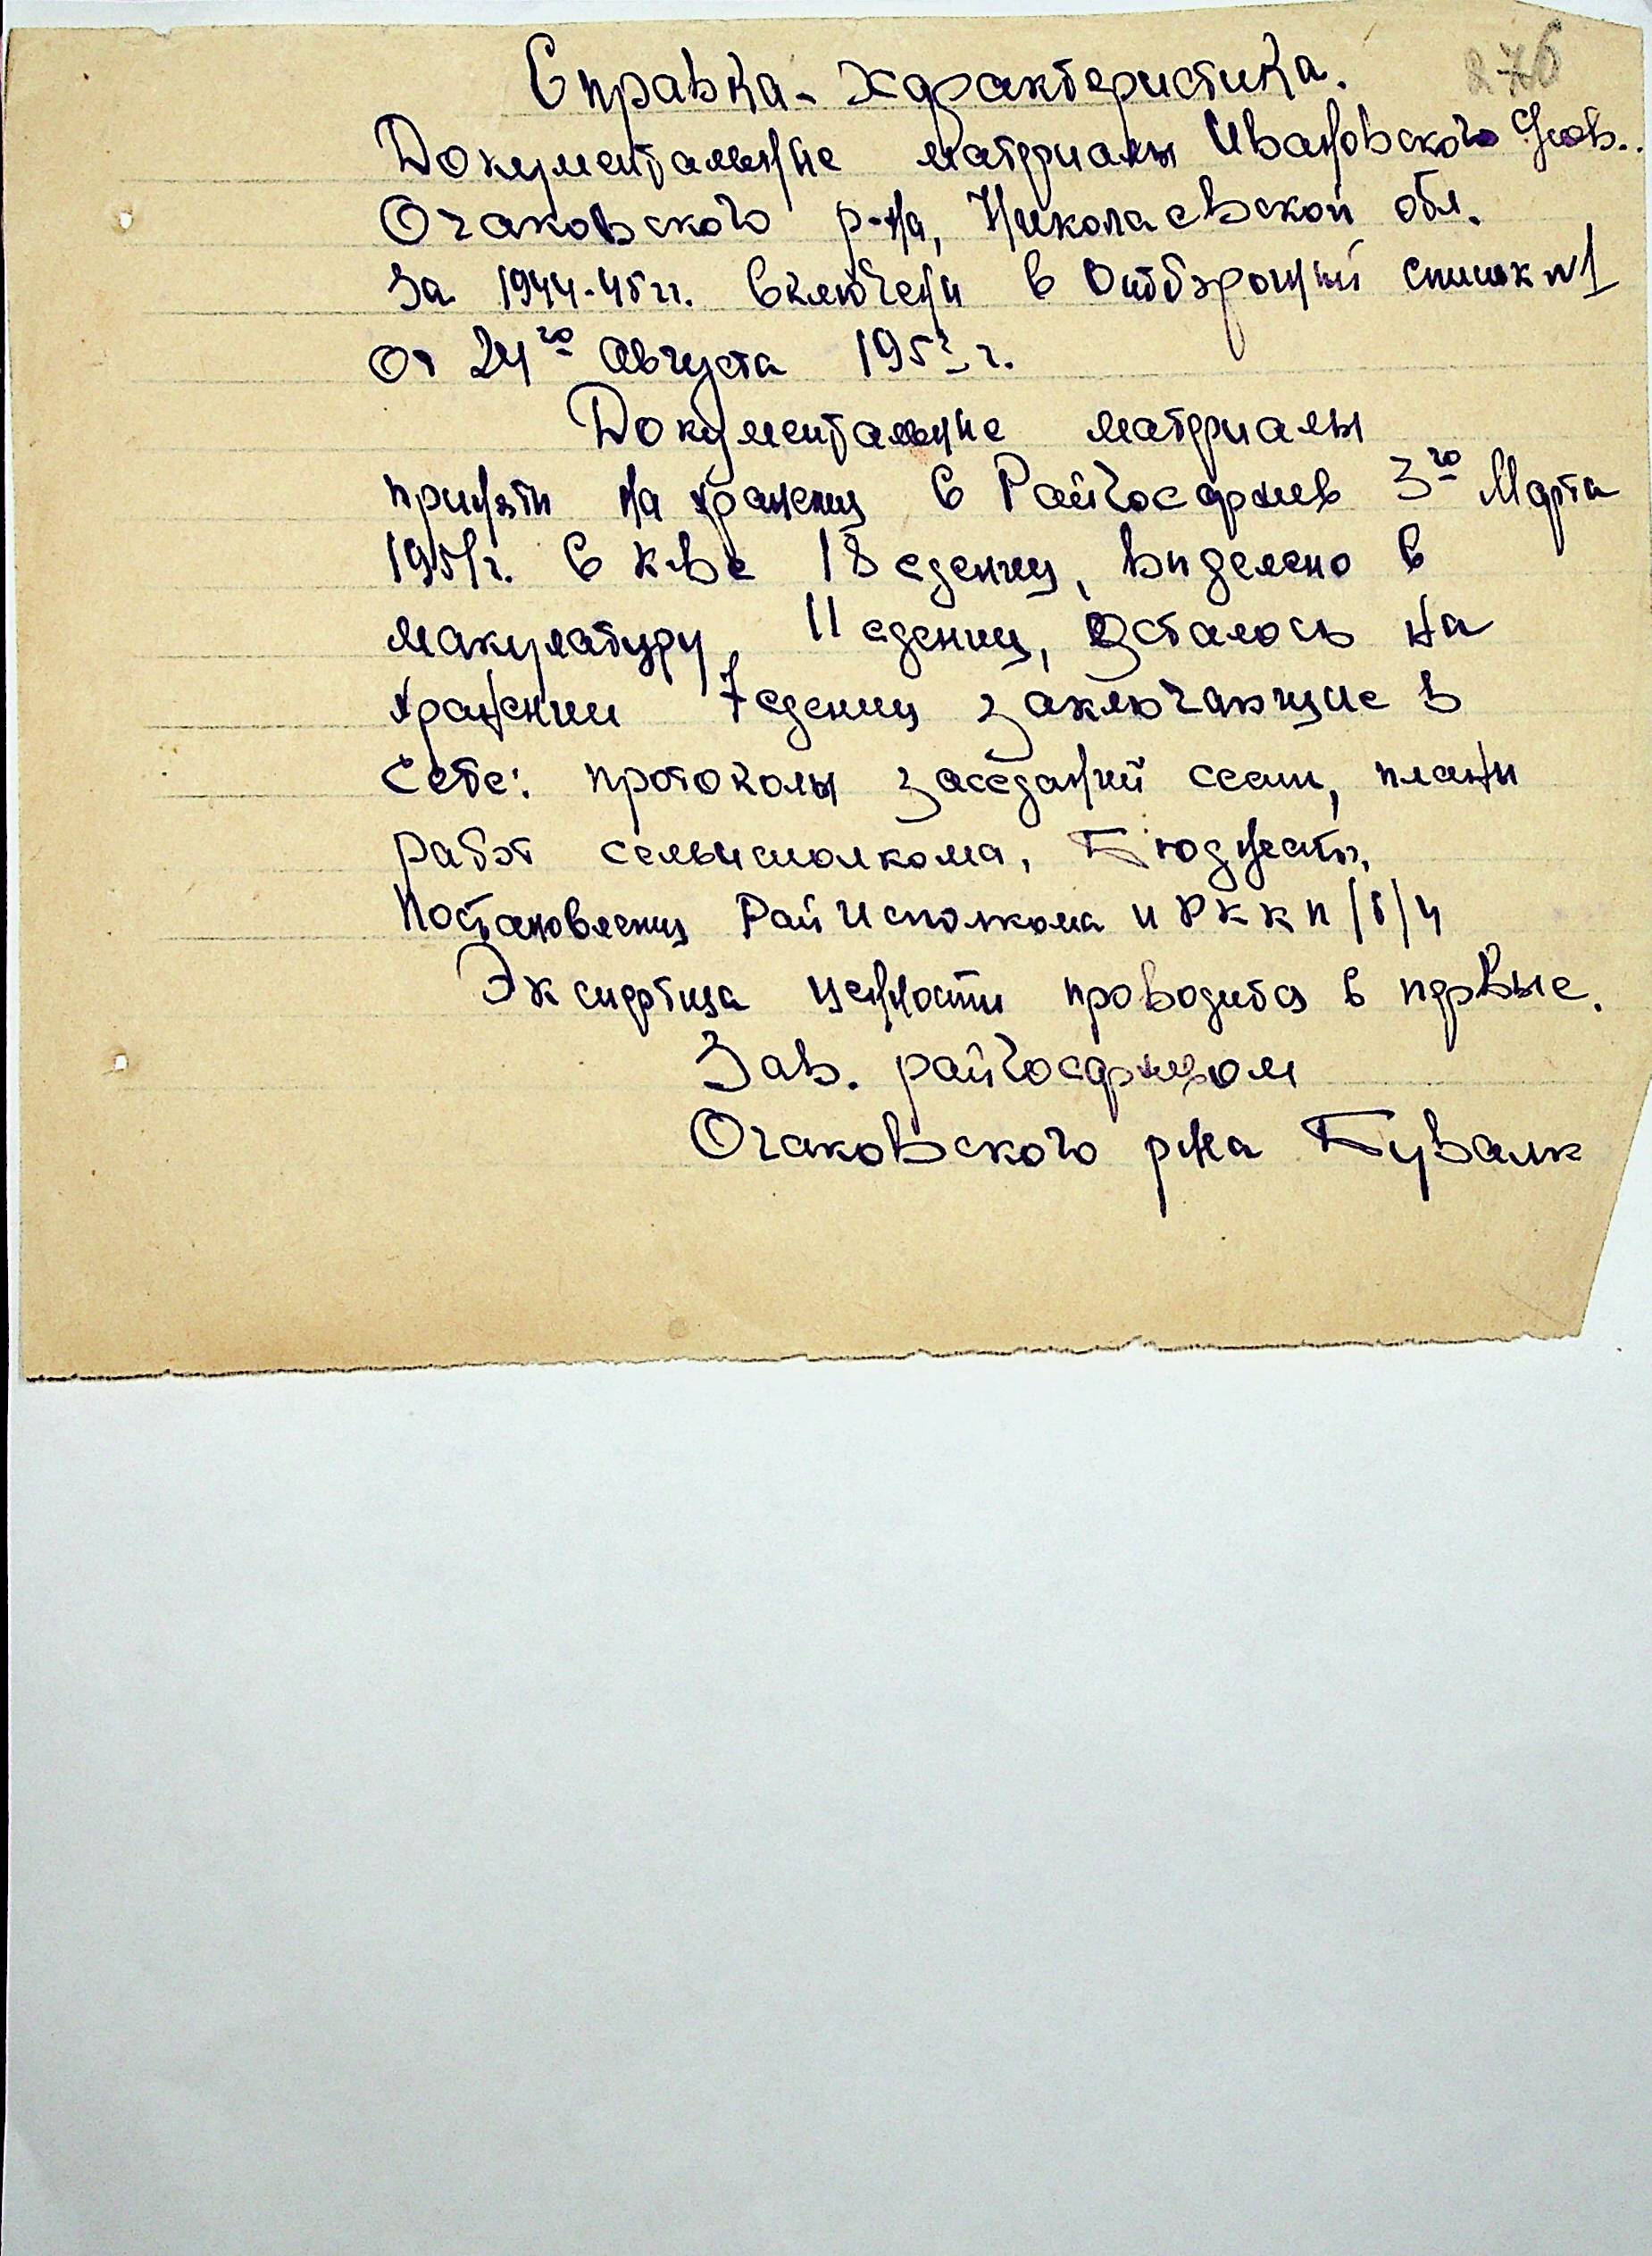 276
Справка-Характеристика.
Документальние материалы Ивановского
Очаковского р-на, Николаевской обл.
За 1944-45 гг. включени в Отборочний список №1
От 24го Августа 195 г.
Документальние материалы
приняти на хранения в Райгосархив 3го Марта
1951г. в к-ве 18 едениц, виделено в
макулатуру, 11 едениц, Осталось на
хранении 7 едениц заключающие в
себе: протоколы заседаний сесии, плани
работ сельисполкома, Бюджеты,
Постановления Райисполкома и РК КП/б/У
Экспертиза ценности проводится в первые.
Зав. райгосархивом
Очаковского р-на Бувалк